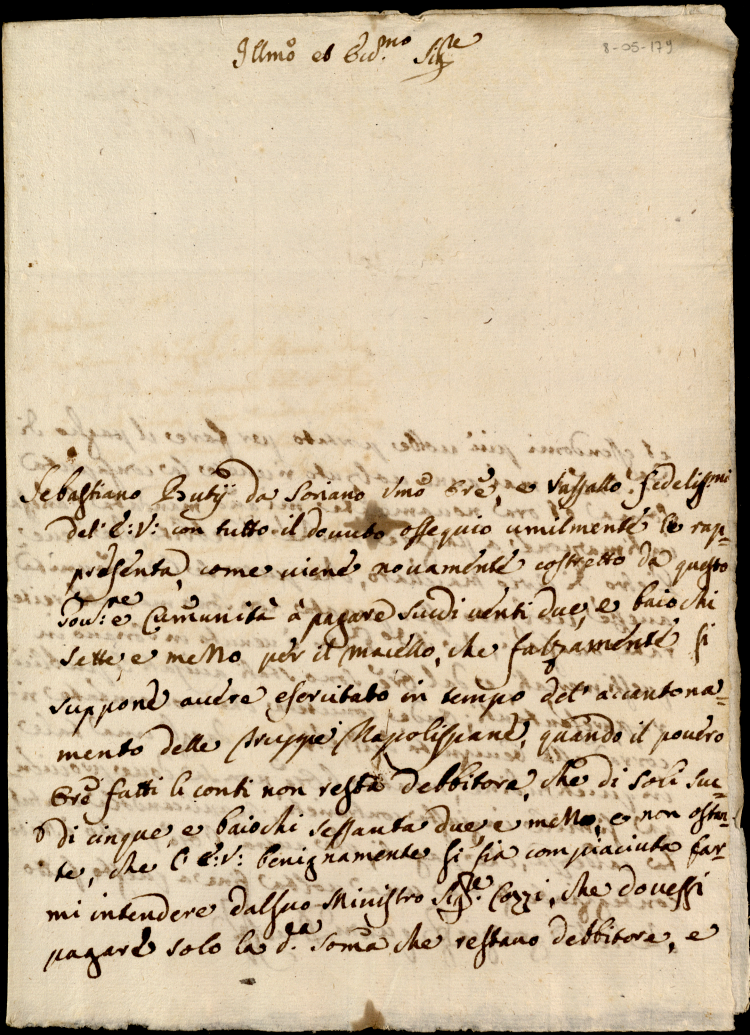 Illmo et Ecc.mo Sig.re
8-05-179
Sebastiano Butij da Soriano Umo Ore, e Vassallo fedelissmi
del' E: V: con tutto il douuto ossequio umilmente le rap=
presenta, come viene nouamente costretto da questo
Gou.re e Comunità à pagare scudi venti due, e baiochi
sette, e mezzo per il macello, che falzamente si
suppone auere esercitato in tempo del' acantona=
mento delle truppe Napolispane, quando il pouero
Ore fatti li conti non resta debbitore, che di soli scu=
di cinque, e baiochi sessanta due e mezzo, e non ostan=
te, che l' E: V: benignamente si sia compiaciuta far=
mi intendere dal suo Ministro Sig.re Cozzi, che douessi
pagare solo la d.a soma che restauo debbitore, e